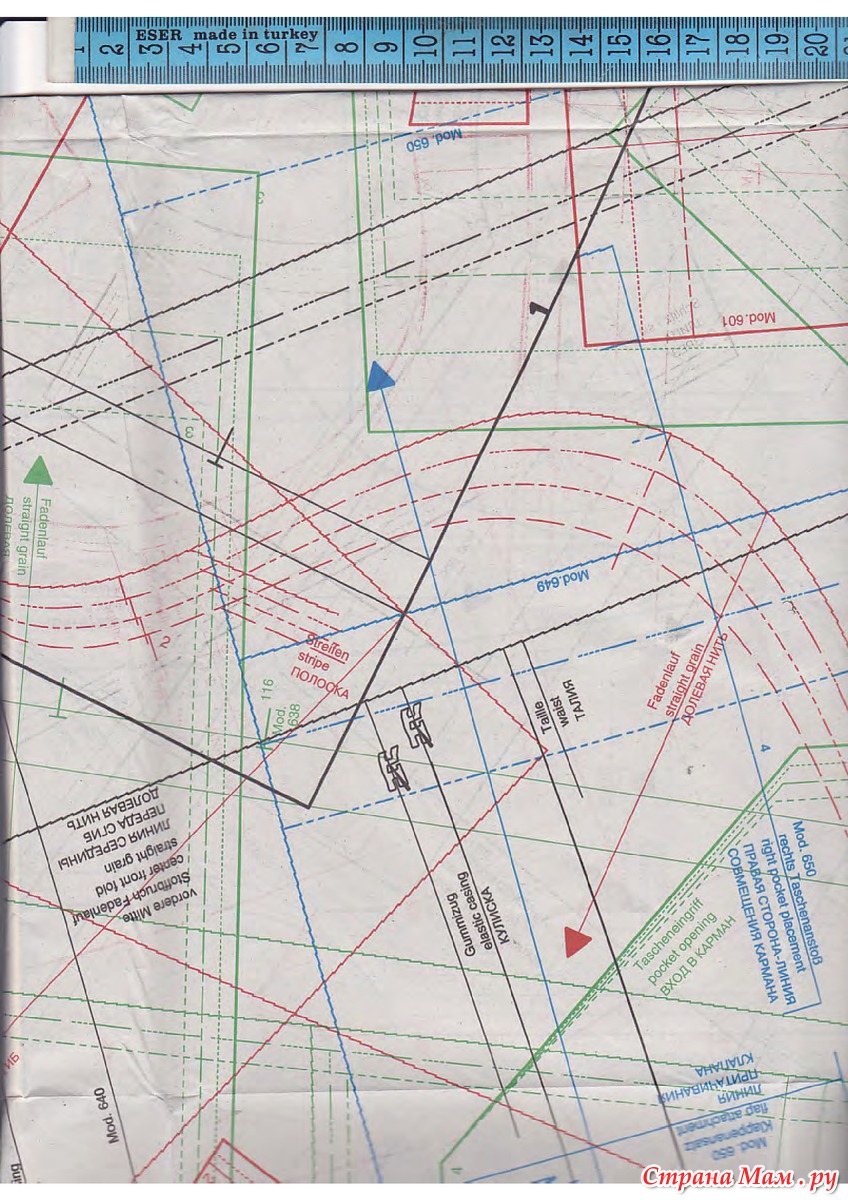 ESER made in turkey
1 2 3 4 5 6 7 8 9 10 11 12 13 14 15 16 17 18 19 20
Mod. 650
3
Mod.601
1
3
Fadenlauf
straight grain
ДОЛЕВАЯ
Mod.649
2
Streifen
stripe
ПОЛОСКА
116
Mod.
638
Taille
waist
ТАЛИЯ
Fadenlauf
straight grain
ДОЛЕВАЯ НИТЬ
4
vordere Mitte
Stoffbruch Fadenlauf
center front fold
straight grain
ЛИНИЯ СЕРЕДИНЫ
ПЕРЕДА СГИБ
ДОЛЕВАЯ НИТЬ
Gummizug
elastic casing
КУЛИСКА
Tascheneingriff
pocket opening
ВХОД В КАРМАН
Mod. 650
rechts Taschenanstoß
right pocket placement
ПРАВАЯ СТОРОНА-ЛИНИЯ
СОВМЕЩЕНИЯ КАРМАНА
Mod. 640
Mod 650
Klappenansatz
flap attachment
ЛИНИЯ
ПРИТАЧИВАНИЯ
КЛАПАНА
4
2
Страна Мам.ру